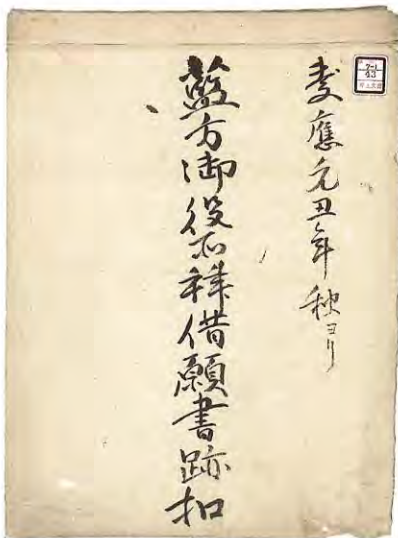 慶應元丑年 秋ヨリ
藍方御役所拝借願書跡扣